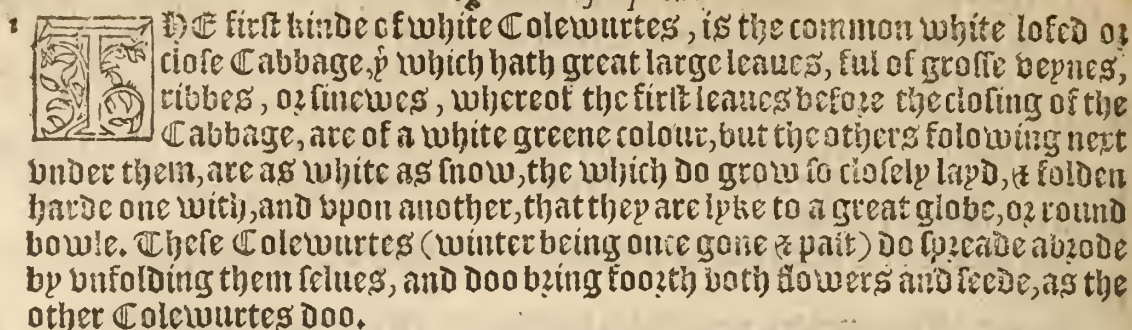 1 THE first kinde of white Colewurtes, is the common white lofed or
close Cabbage, þ which hath great large leaues, ful of grosse veynes,
ribbes, or sinewes, whereof the first leaues before the closing of the
Cabbage, are of a white greene colour, but the others folowing next
vnder them, are as white as snow, the which do grow so closely lapd, & folden
harde one with, and vpon another, that they are lyke to a great globe, or round
bowle. These Colewurtes (winter being once gone & past) do spreade abrode
by vnfolding them selues, and doo bring foorth both flowers and seede, as the
other Colewurtes doo.